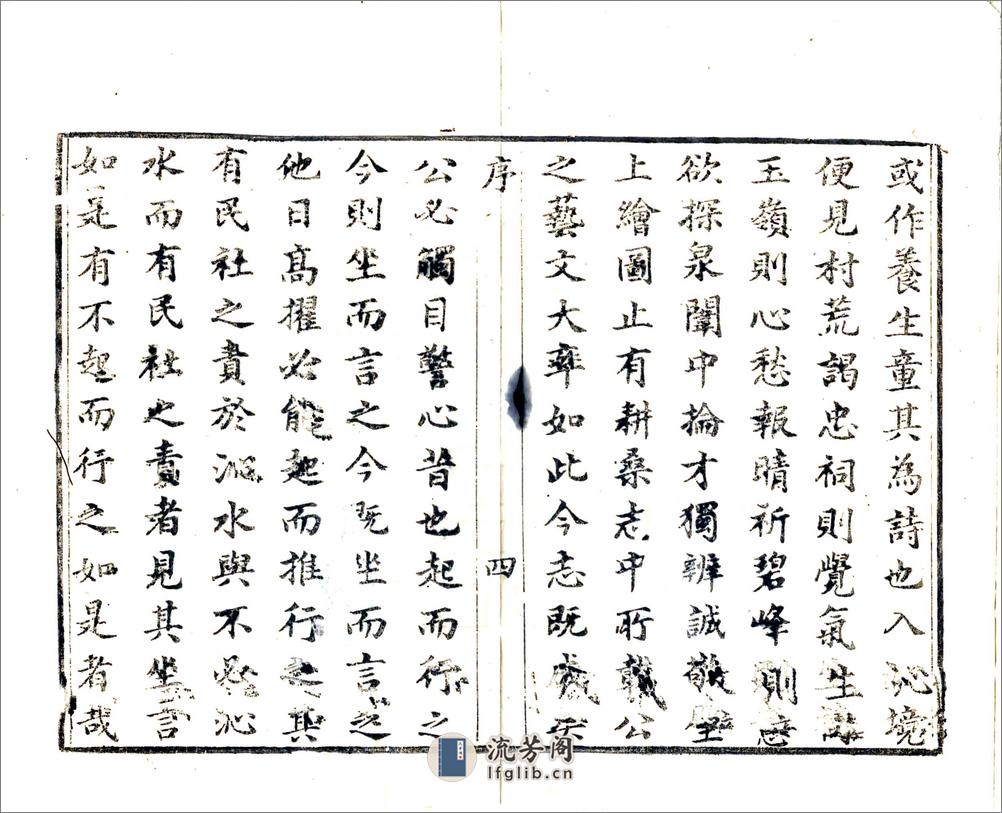 或作養生童其為詩也入沁境
便見村荒謁忠祠則覺氣生
玉嶺則心愁報晴祈碧峰則
欲探泉闈中掄才獨辨誠敬
上繪圖止有耕桑志中所載公
之藝文大率如此今志既成矣
序 四
公必觸目警心昔也起而行之
今則坐而言之今既坐而言之
他日高擢必能起而推行之其
有民社之責於沁水與不必沁
水而有民社之責者見其坐言
如是有不起而行之如是者哉
流芳阁
lfglib.cn